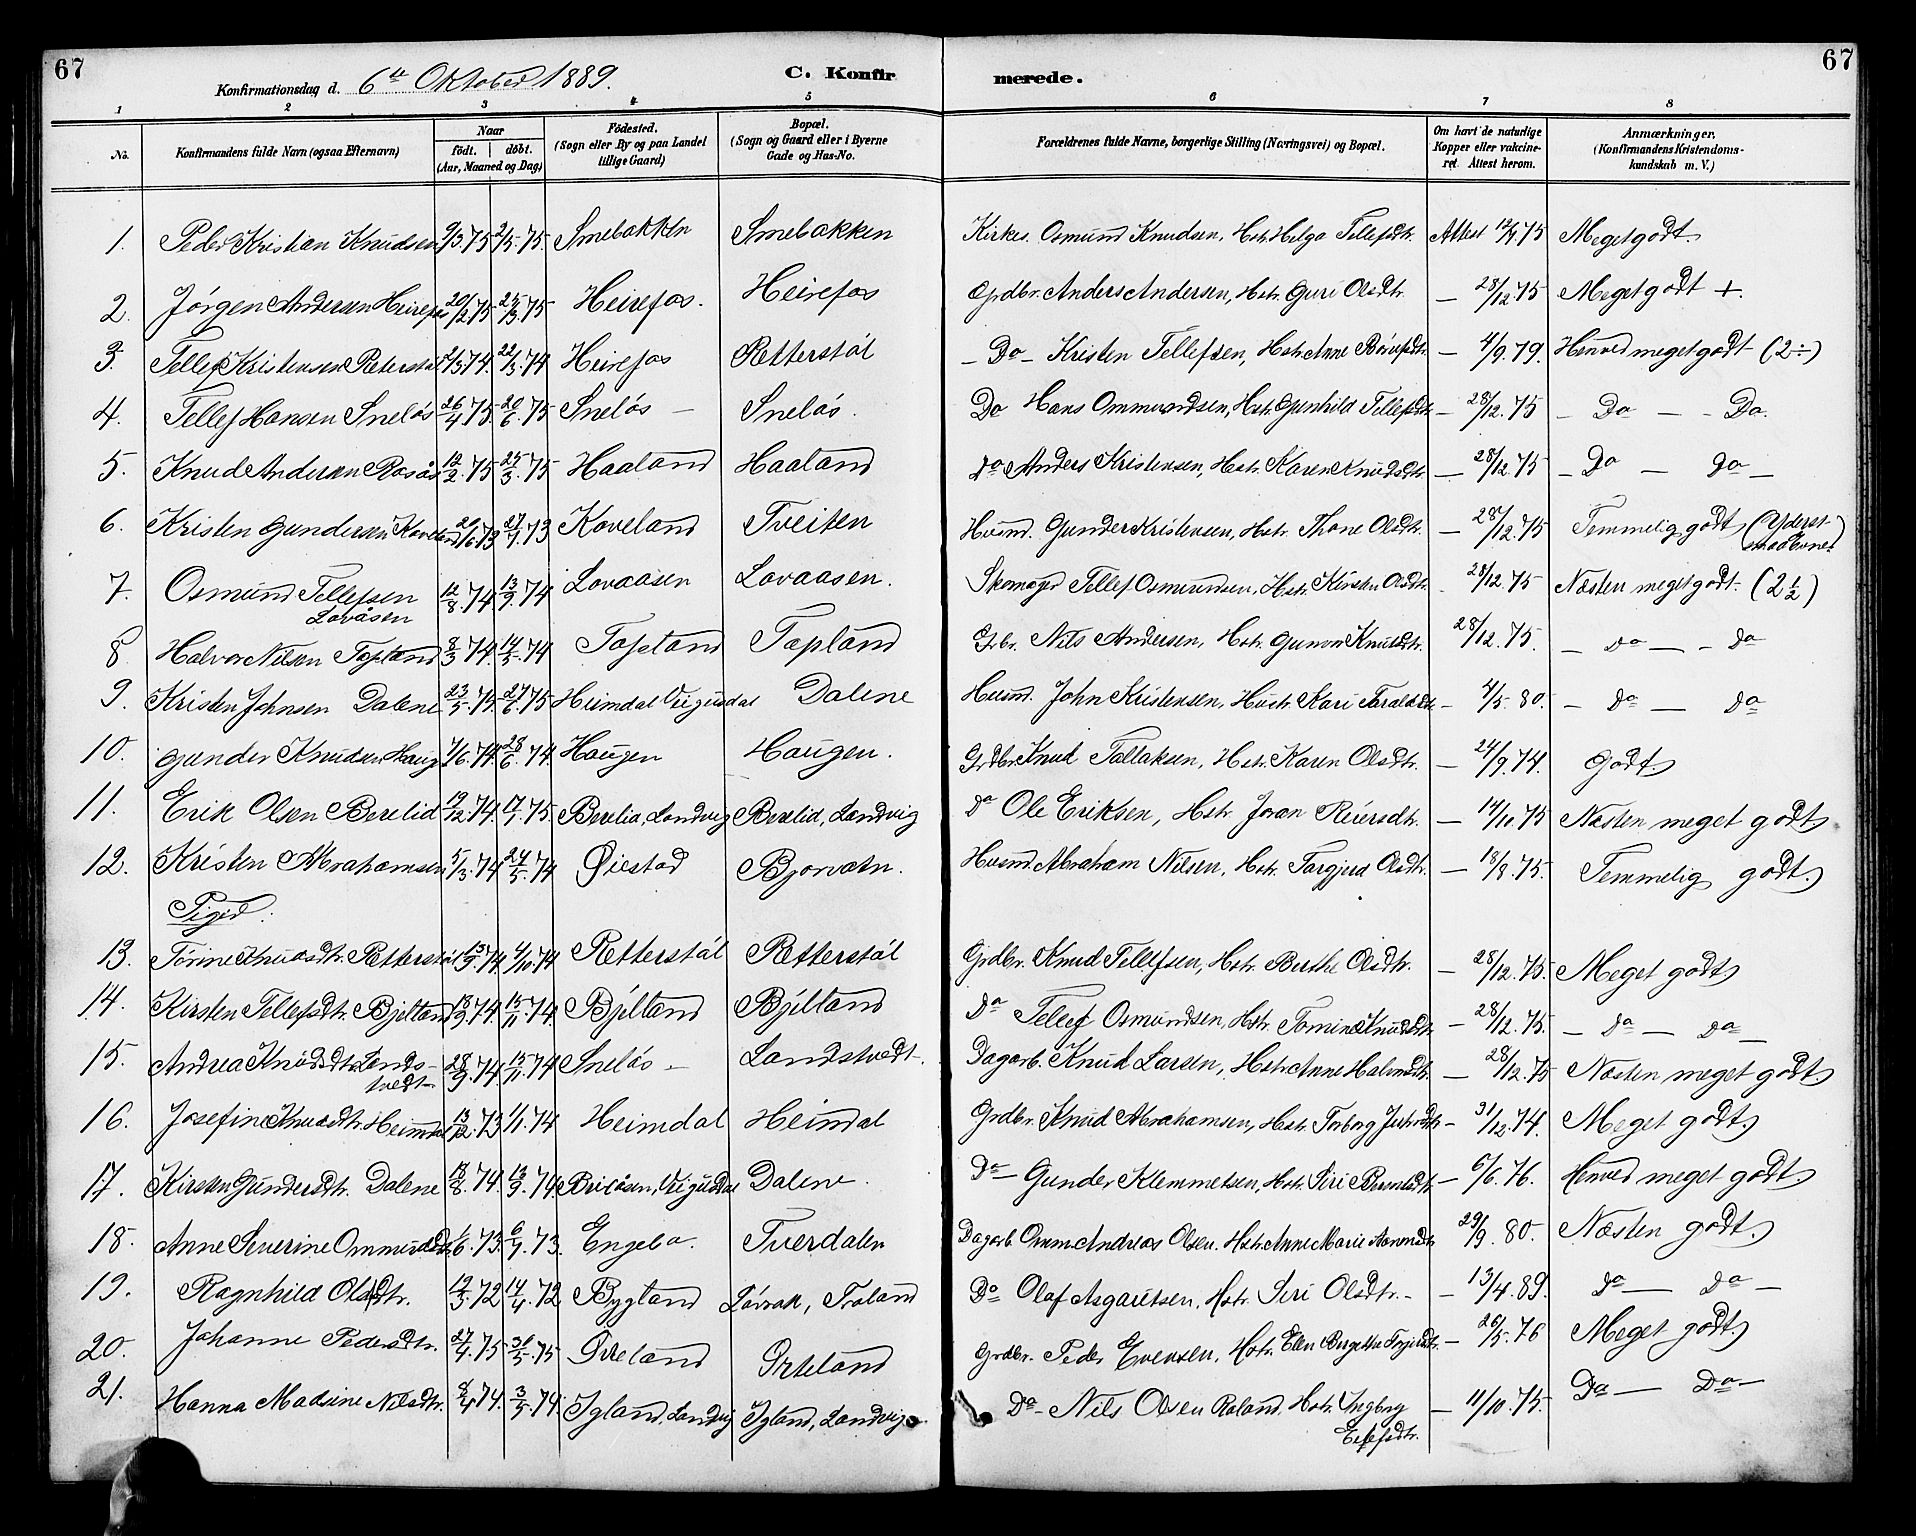 67
Konfirmationsdag d. 6te Oktober 1889.
C. Konfirmerede.
67
1 2 3 4 5 6 7 8
No.
Konfirmandens fulde Navn (ogsaa Efternavn)
Naar
födt. döbt.
(Aar, Maaned og Dag)
Födested.
(Sogn eller By og paa Landet
tillige Gaard)
Bopæl.
(Sogn og Gaard eller i Byerne
Gade og Hus-No.
Forældrenes fulde Navne, borgerlige Stilling (Næringsvei) og Bopæl.
Om havt de naturlige
Kopper eller vakcine-
ret Attest herom.
Anmærkninger.
(Konfirmandens Kristendoms-
kundskab m. V.)
1. Peder Kristian Knudsen 9/3.75 2/5.75 Smebakken Smebakken Kirkes. Osmund Knudsen, Hstr. Helga Tellefsdtr. Attest 12/9 75 Meget godt.
2. Jørgen Andersen Heirefos 20/2.75 25/3.75 Heirefos. Heirefos Grdbr. Anders Andersen, Hstr. Guri Olsdtr. — 28/12.75 Meget godt +.
3. Tellef Kristensen Retterstøl 2/3.74. 22/3.74 Heirefos Retterstøl — Do — Kristen Tellefsen, Hstr. Anne — 4/9.79. Henved meget godt (2÷)
4. Tellef Hansen Sneløs 26/4.75. 20/6.75 Sneløs — Sneløs. Do Hans Ommundsen, Hstr. Gunhild Tellefsdtr. — 28/12.75 — Do — - Do.
5. Knud Andersen 12/2.75 25/3.75 Haaland Haaland Do Anders Kristensen, Hstr. Karen Knudsdtr. — 28/12.75 — Do — Do —
6. Kristen Gundersen Koveland 20/6.73 27/7.73 Koveland Tveiten Husmd. Gunder Kristensen, Hstr. Thone Olsdtr. — 28/12.75 Temmelig godt (Yderst
smaa Evner)
7. Osmund Tellefsen 12/8.74 13/9.74 Lovaasen Lovaasen. Skomager Tellef Osmundsen, Hstr. Kirsten Olsdtr. 28/12.75 Næsten meget godt (2 1/2)
Lovåsen
8. Halvor Nilsen Topland 8/3 74. 14/5.74 Topland Topland Grbr. Nils Andersen, Hstr. Gunvor Knutsdtr. 28/12.75. — do — - do
9. Kristen Johnsen Dalene 23/5.74. 27/6.75 Heimdal Vegusdal Dalene Husmd. John Kristensen, Hustr. Kari — 4/5.80. — do — do
10. Gunder Knudsen Haug 7/6.74. 28/6.74 Haugen Haugen. Grdbr. Knud Tallaksen, Hstr. Karen Olsdtr. — 24/9.74. Godt.
11. Erik Olsen Berelid 19/12.74. 17/1.75. Berelid, Landvig Berelid, Landvig do Ole Eriksen, Hstr. Joran Reiersdtr. — 14/11.75 Næsten meget godt
12. Kristen Abrahamsen 5/3.74 24/5.74 Øiestad Bjorvatn. Husmd. Abraham Nilsen, Hstr. Targjerd Olsdtr. — 18/8.75. Temmelig godt.
Piger:
13. Tørine Knudsdtr. Retterstøl 13/9.74 4/10.74 Retterstøl Retterstøl Grdbr. Knud Tellefsen, Hstr. Berthe Olsdtr. — 28/12.75. Meget godt
14. Kirsten Tellefsdtr. Bjelland 18/9.74. 15/11.74. Bjelland Bjelland do Tellef Osmundsen, Hstr. Tomine Knudsdtr — 28/12.75. — do — do —
15. Andrea Knudsdtr. Lands- 28/9.74 15/11.74 Sneløs — Landstvedt Dagarb. Knud Larsen, Hstr. Anne Halvorsdtr. — 28/12.75 Næsten meget godt.
tvedt
16. Josefine Knudsdtr. Heimdal 13/12.73 1/1.74 Heimdal Heimdal Grdbr. Knud Abrahamsen, Hstr. Torborg — 31/12.74. Meget godt.
17. Kirsten Gundersdtr. Dalene 18/8.74. 13/9.74 Vegusdal Dalene. do — Gunder Klemmetsen, Hstr. Siri — 6/6.76. Henved meget godt.
18. Anne Severine Ommundsdtr. 1/6.73. 6/7.73. Engebo. Tverdalen Dagarb. Omm Andreas Olsen. Hstr. Anne Marie 29/9.80. Næsten godt.
19. Ragnhild Olsdtr. 19/3.72 14/4.72 Bygland Løvrak, Froland Do Olaf Asgautsen, Hstr. Siri Olsdtr. — — 13/4.89. do — do —
20. Johanne Pedersdtr. 27/4.75 31/5.75 Birkeland Birkeland Grdbr. Peder Evensen, Hstr. Elen Bergette — 26/5.76 Meget godt.
21. Hanna Madsine Nilsdtr. 8/4.74. 3/5.74. Igland, Landvig Igland, Landvig Do — Nils Olsen Roland, Hstr. Ingborg — 11/10.75. Do — Do —
Eilefsdtr.